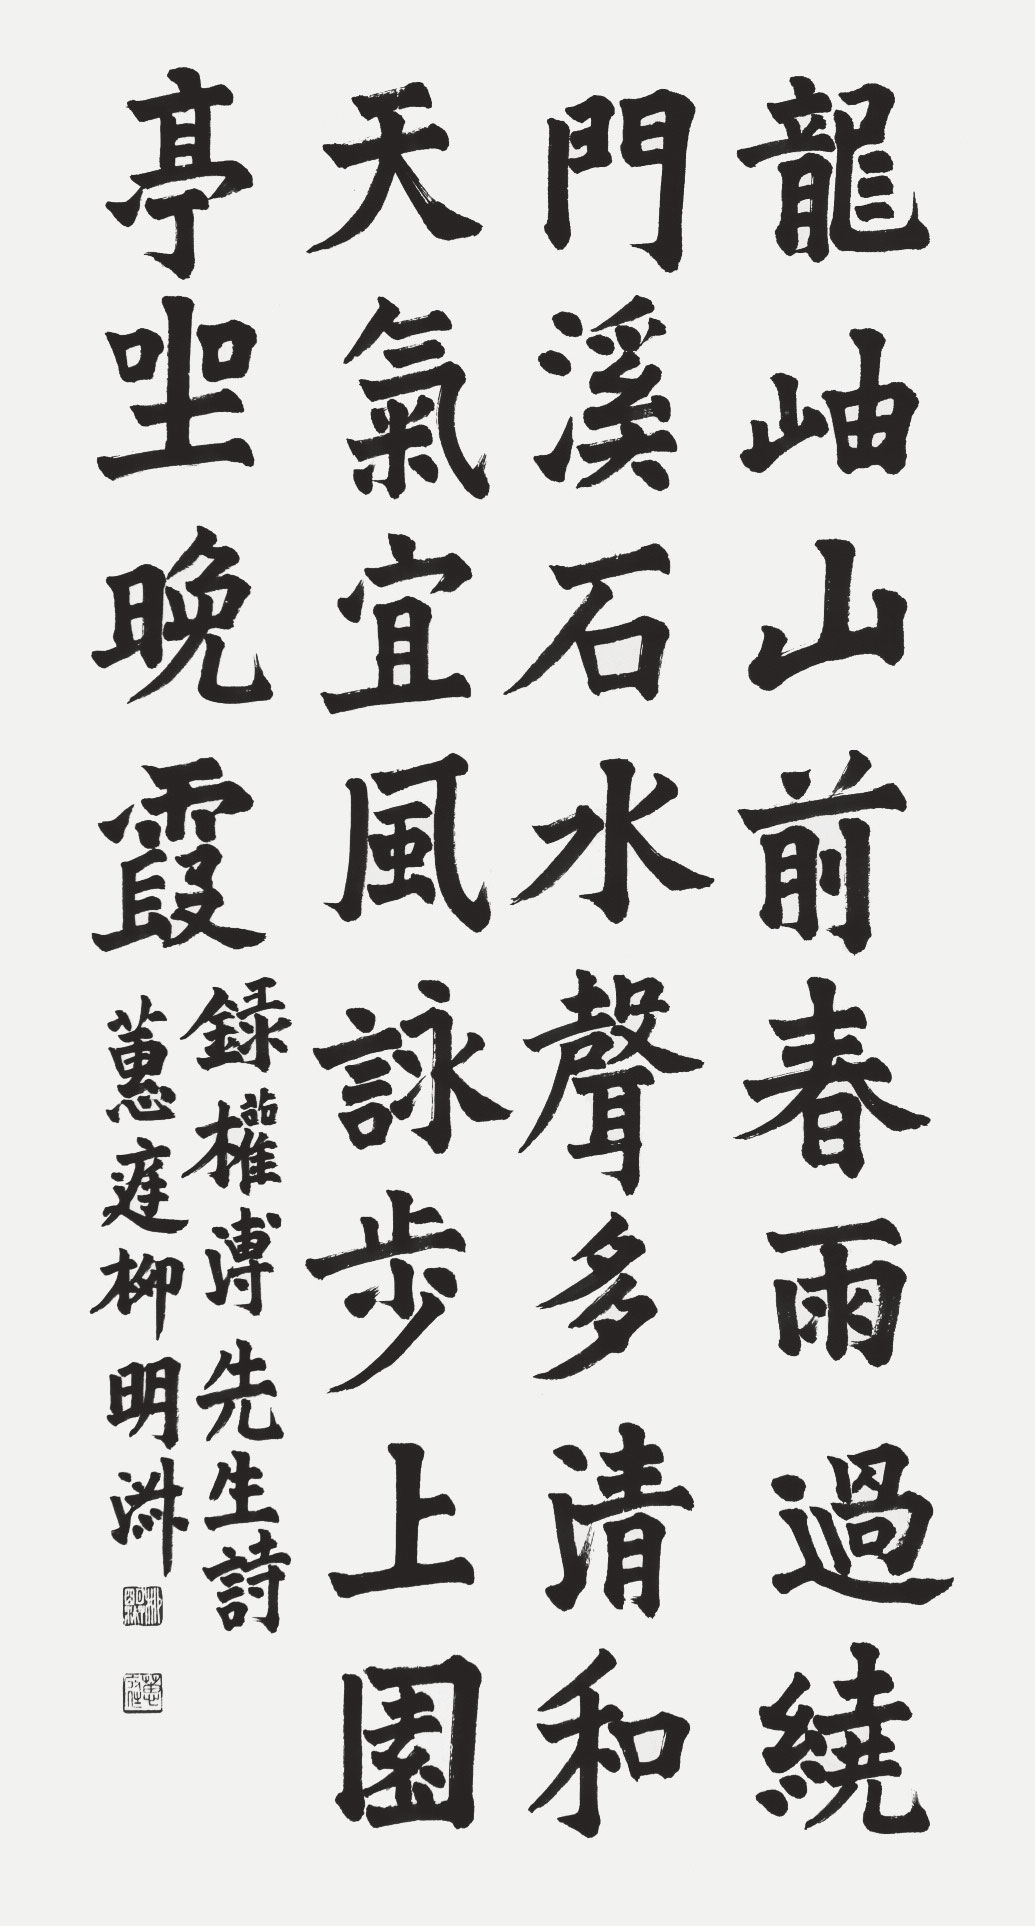 龍岫山前春雨過繞
門溪石水聲多清和
天氣宜風詠步上園
亭坐晚霞
錄權溥先生詩
蕙庭柳明